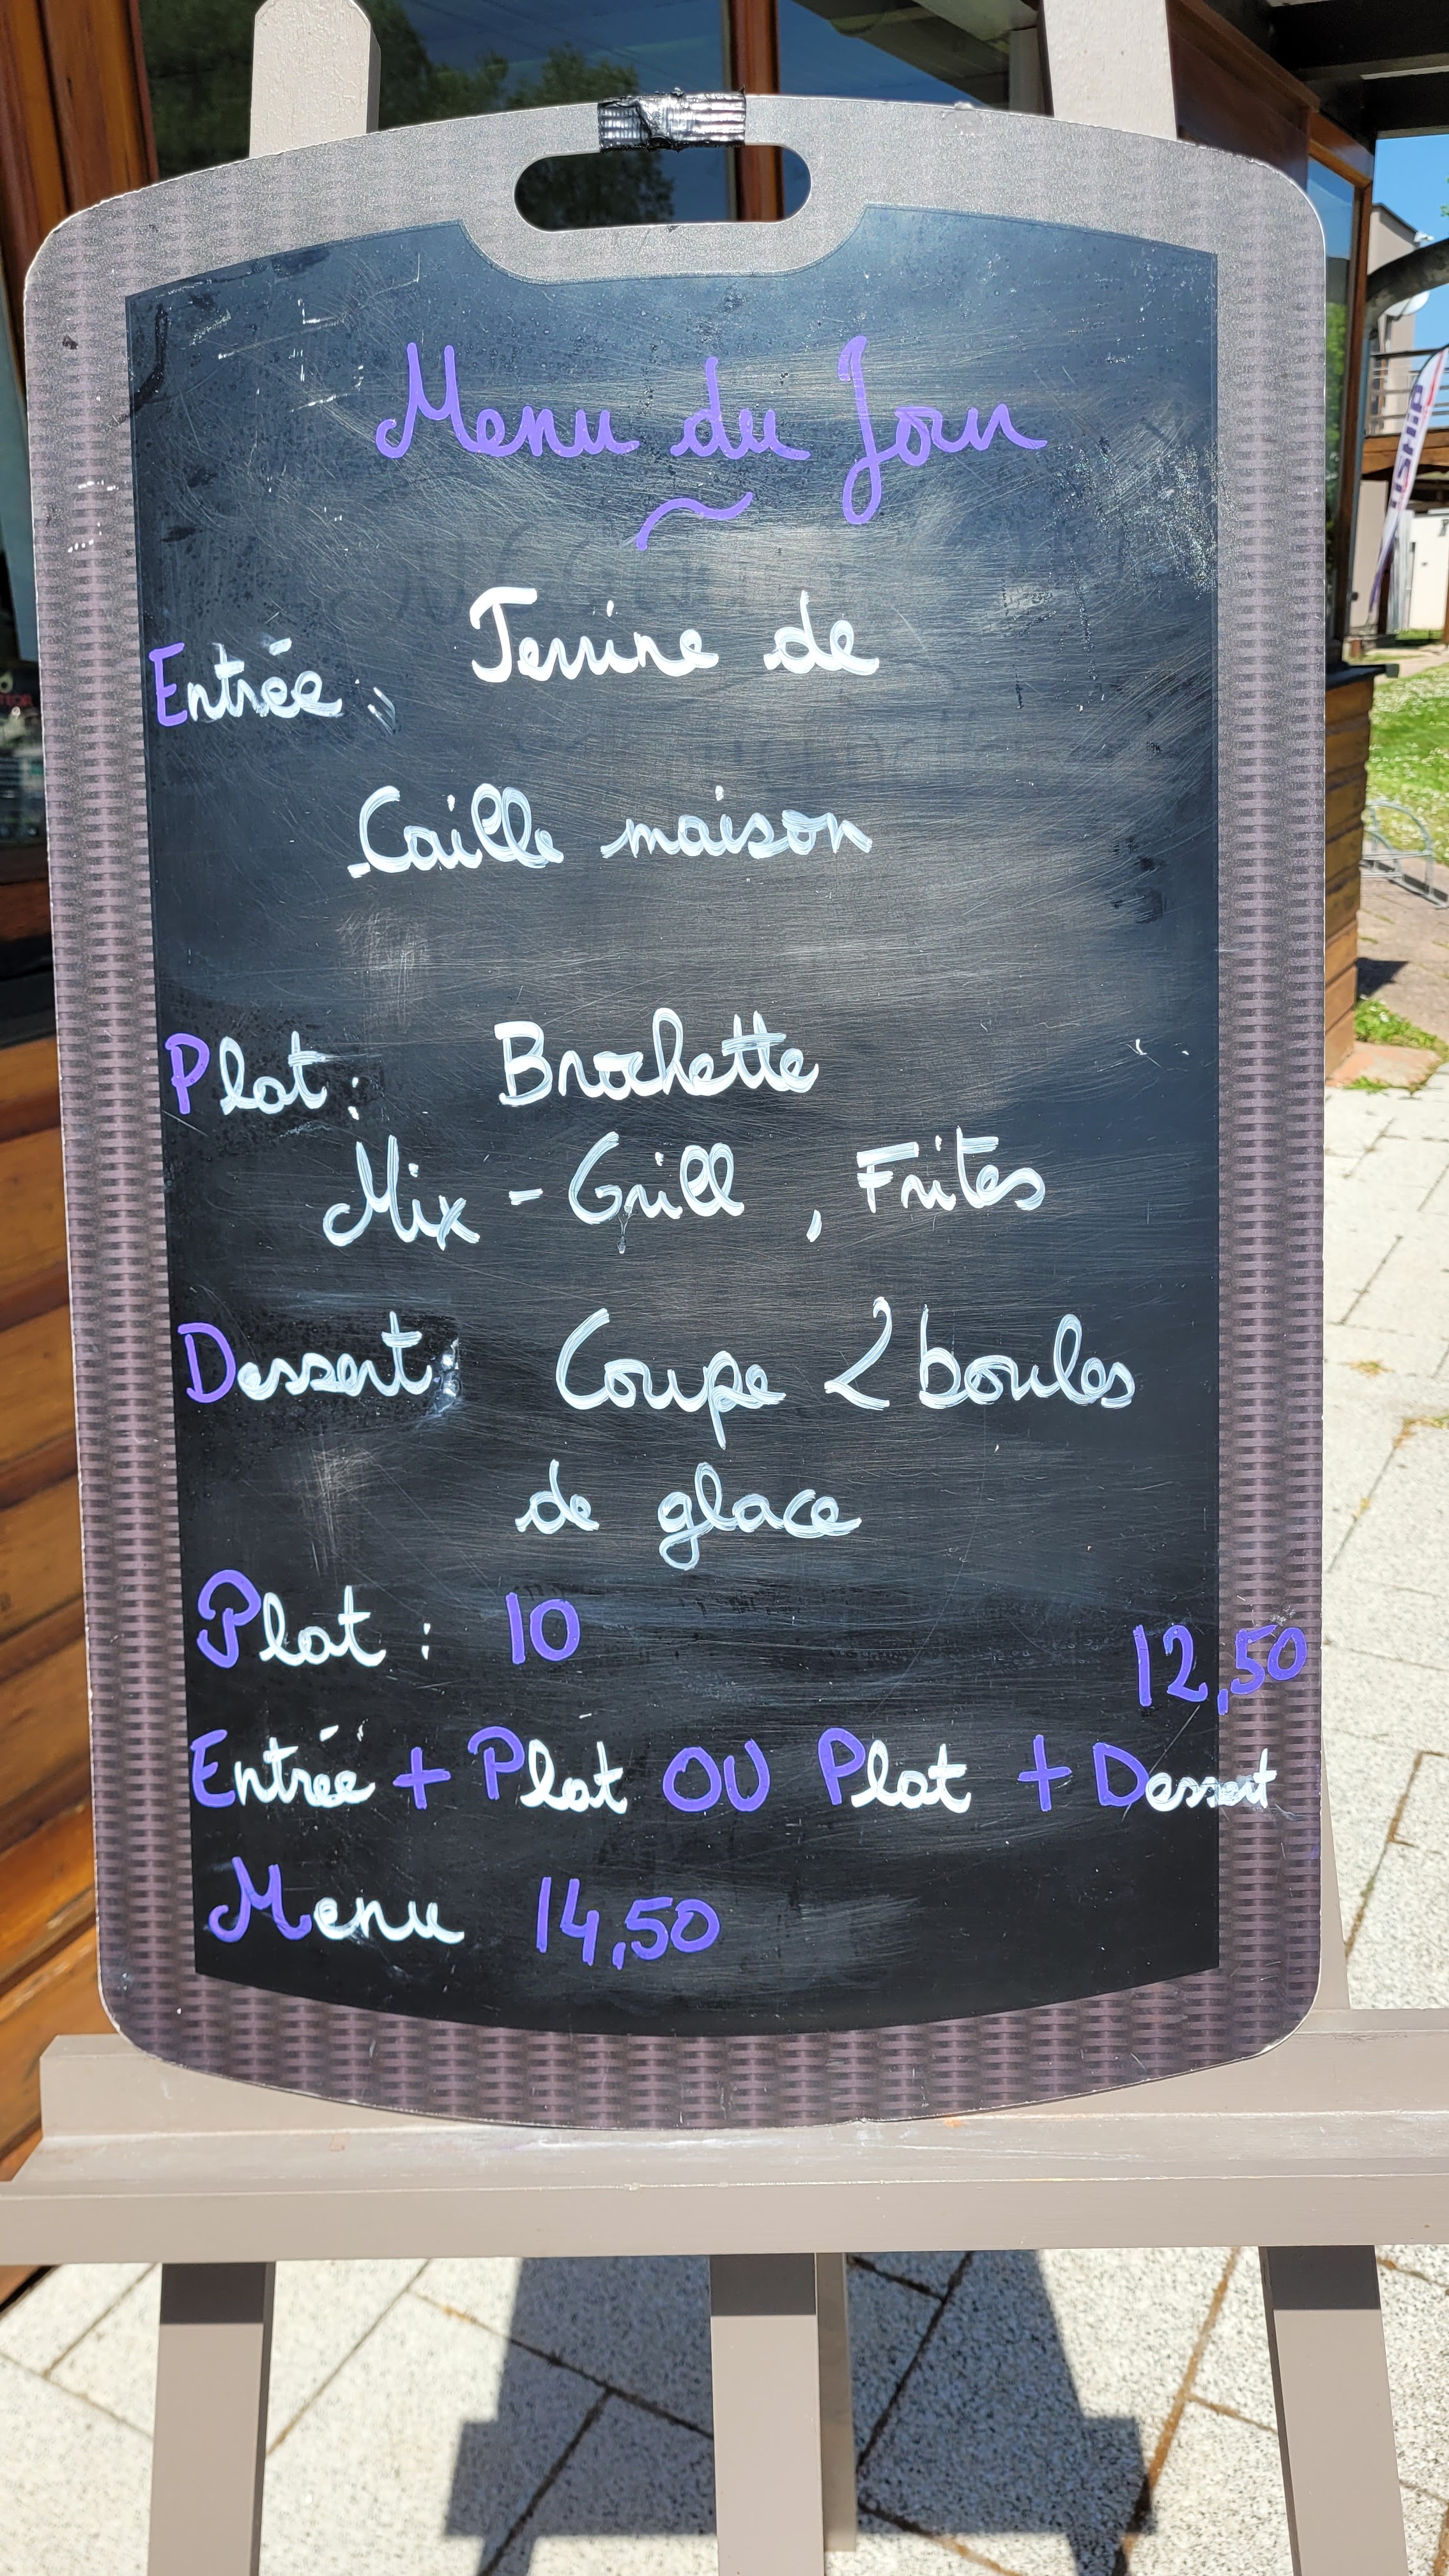 Menu du Jour
Entrée : Terrine de
Caille maison
Plat : Brochette
Mix - Grill , Frites
Dessert : Coupe 2 boules
de glace
Plat : 10
12,50
Entrée + Plat OU Plat + Dessert
Menu 14,50